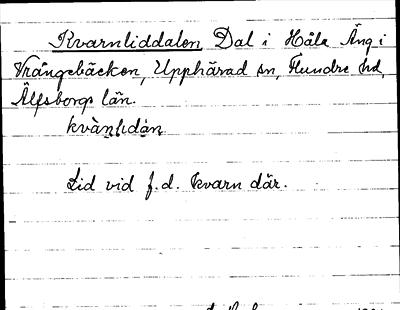 Kvarnliddalen Dal i Håle Äng i
Vrångebäcken, Upphärad sn, Flundre hd,
Älfsborgs län.
kvà̀ṇlıdán
Lid vid f.d. kvarn där.